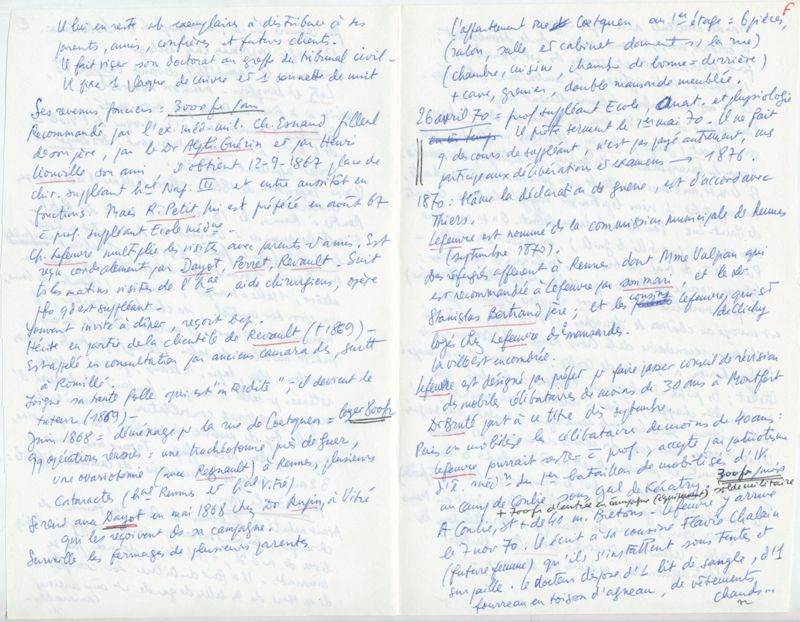 Il lui en reste 46 exemplaires à distribuer à ses
parents, amis, confrères et futurs clients.
Il fait viser son doctorat au greffe du tribunal civil -
Il fixe 1 plaque de cuivre et 1 sonnette de nuit
Ses revenus fonciers : 3000 fr /an
Recommandé par l'ex. méd. mil. Ch. filleul
de son père, par le Dr Alph. Guérin et par Henri
son ami il obtient 12-9-1867, place de
chir. suppléant hal Nap. III et entre aussitôt en
fonctions. Mais R. Petit lui est préféré en août 67
prof. suppléant Ecole médne -
Ch. Lefeuvre multiplie les visites avec parents et amis. Est
reçu cordialement par Dayot, Perret, Revault. Suit
ts les matins visites de l'hal, aide chirurgiens, opère
qd est suppléant -
Souvent invité à dîner, reçoit bcp -
Hérite en partie de la clientèle de Revault († 1869) -
Est appelé en consultation par anciens camarades, surtt
à Romillé.
Soigne sa tante folle qui est "interdite" - il devient le
tuteur (1869) -
Juin 1868 = déménage pr la rue de Coetquen = loyer 800 fr
Qq opérations réussies : une trachéotomie près de Guer,
une ovariotomie (avec Regnault) à Rennes, plusieurs
cataractes (hal Rennes et hal Vitré)
Se rend avec Dayot en mai 1868 chez Dr Rupin, à Vitré
qui les reçoivent ds sa campagne.
Surveille les fermages de plusieurs parents
F
L'appartement rue de Coetquen au 1er étage = 6 pièces,
(salon, salle et cabinet donnent s/ la rue)
(chambre, cuisine, chambre de bonne = derrière)
+ cave, grenier, double mansarde meublée.
26 avril 70 = prof suppléant Ecole, Anat. et physiologie
Il prête serment le 1er mai 70. Il ne fait
q. des cours de suppléant, n'est pas payé autrement, ms
participe aux délibérations et examens → 1876.
1870 : blâme la déclaration de guerre, est d'accord avec
Thiers.
Lefeuvre est nommé de la commission municipale de Rennes
(septembre 1870).
Des réfugiés affluent à Rennes dont Mme Vulpian qui
est recommandée à Lefeuvre par son mari, et le Dr
Stanislas Bertrand père, et les cousins Lefeuvre, qui st
de Clichy
logés chez Lefeuvre ds 2 mansardes.
La ville est encombrée.
Lefeuvre est désigné par préfet pr faire passer conseil de révision
des mobiles célibataires de moins de 30 ans à Montfort
Dr Bruté part à ce titre dès septembre.
Puis on mobilise les célibataires de moins de 40 ans :
Lefeuvre pourrait rester prof., accepte par patriotisme
d'ê. médn du 1er bataillon de mobilisés d'I.V.
au camp de Conlie, sous gal de Kératry. 300 fr/mois
+ 700 fr d'entrée en campagne (équipement) solde militaire
A Conlie, st + de 40 m. Bretons - Lefeuvre y arrive
le 7 nov 70. Il écrit à sa cousine Flavie Chalain
(future femme) qu'ils s'installent sous tentes et
sur paille. Le docteur dispose d'1 lit de sangle, d'1
fourreau en toison d'agneau, de vêtements
chauds...